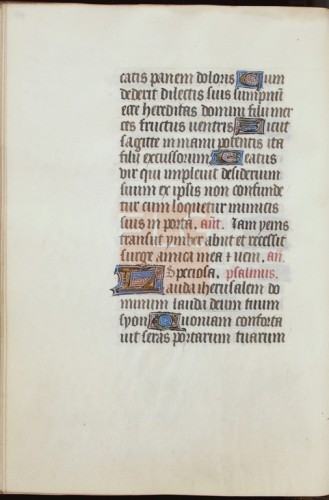 catis panem doloris Cum
dederit dilectis suis sumpnū
ecce hereditas domini filii mer
ces fructus ventris Sicut
sagitte in manu potentis ita
filii excussorum Beatus
vir qui implevit desiderium
suum ex ipsis non confunde
tur cum loquetur inimicis
suis in porta. añt. Iam yems
transiit ymber abiit et recessit
surge amica mea et veni. añ.
Speciosa. psalmus.
Lauda iherusalem do
minum lauda deum tuum
syon Quoniam conforta
vit seras portarum tuarum